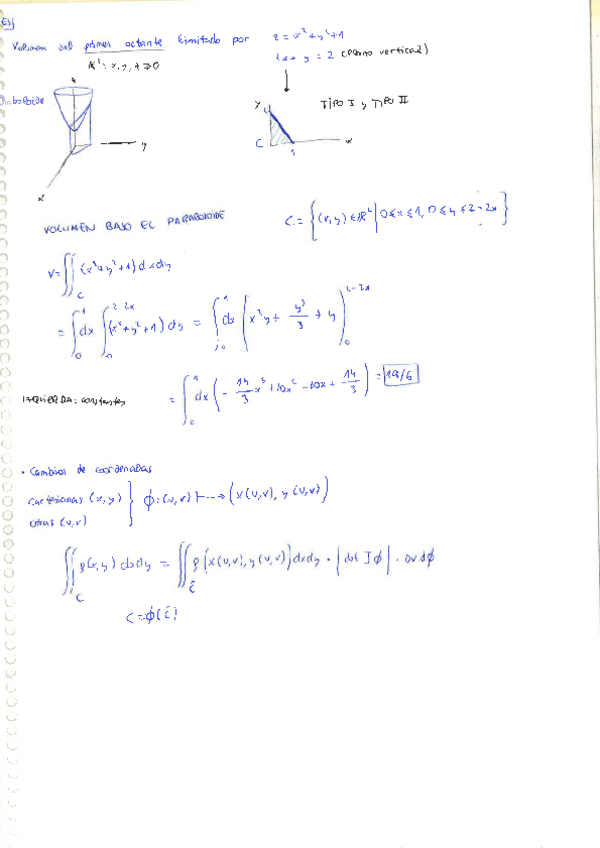 Ej
Volumen del primer octante limitado por z = x² + y² + 1
R³: x, y, z ≥ 0
2x + y = 2 (plano vertical)
z
Paraboloide
y
x
y
TIPO I y TIPO II
C
1
x
VOLUMEN BAJO EL PARABOLOIDE
C = {(x,y) ∈ R² | 0 ≤ x ≤ 1, 0 ≤ y ≤ 2 - 2x}
V = ∬_C (x² + y² + 1) dx dy
= ∫₀¹ dx ∫₀^{2-2x} (x² + y² + 1) dy = ∫₀¹ dx (x²y + y³/3 + y)₀^{2-2x}
IZQUIERDA: constantes
= ∫₀¹ dx (-14/3 x³ + 10x² - 10x + 14/3) = 19/6
• Cambios de coordenadas
cartesianas (x,y)
otras (u,v)
} ϕ: (u,v) ↦ (x(u,v), y(u,v))
∬_C ρ(x,y) dx dy = ∬_C̃ ρ(x(u,v), y(u,v)) dx dy · |det Jϕ| ·
C = ϕ(C̃)